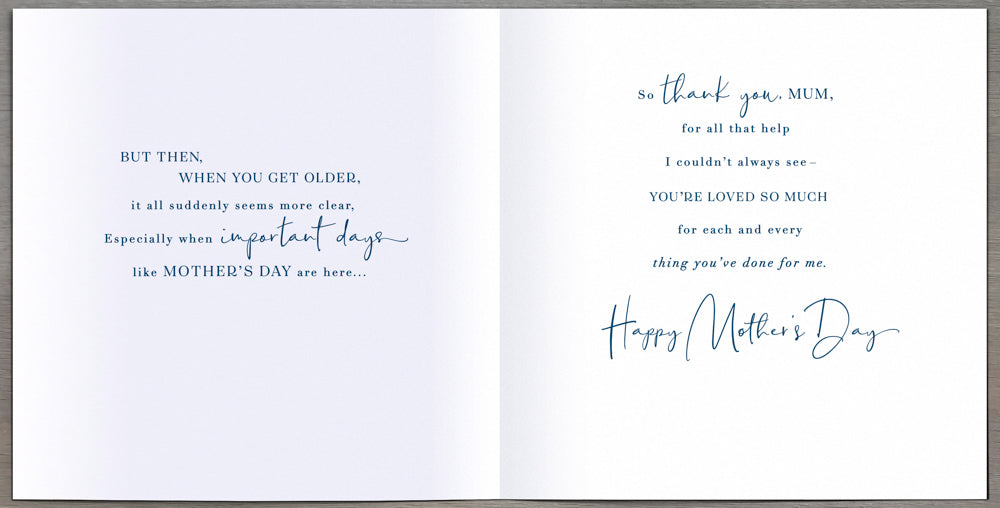 BUT THEN,
WHEN YOU GET OLDER,
it all suddenly seems more clear,
Especially when important days
like MOTHER'S DAY are here...
So thank you, MUM,
for all that help
I couldn't always see–
YOU'RE LOVED SO MUCH
for each and every
thing you've done for me.
Happy Mother's Day